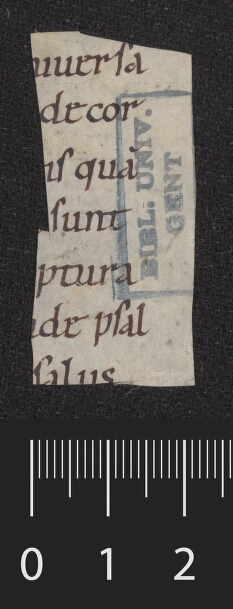 niuersa
decor
us quā
sunt
ptura
de psal
salus
BIBL. UNIV.
GENT
0 1 2